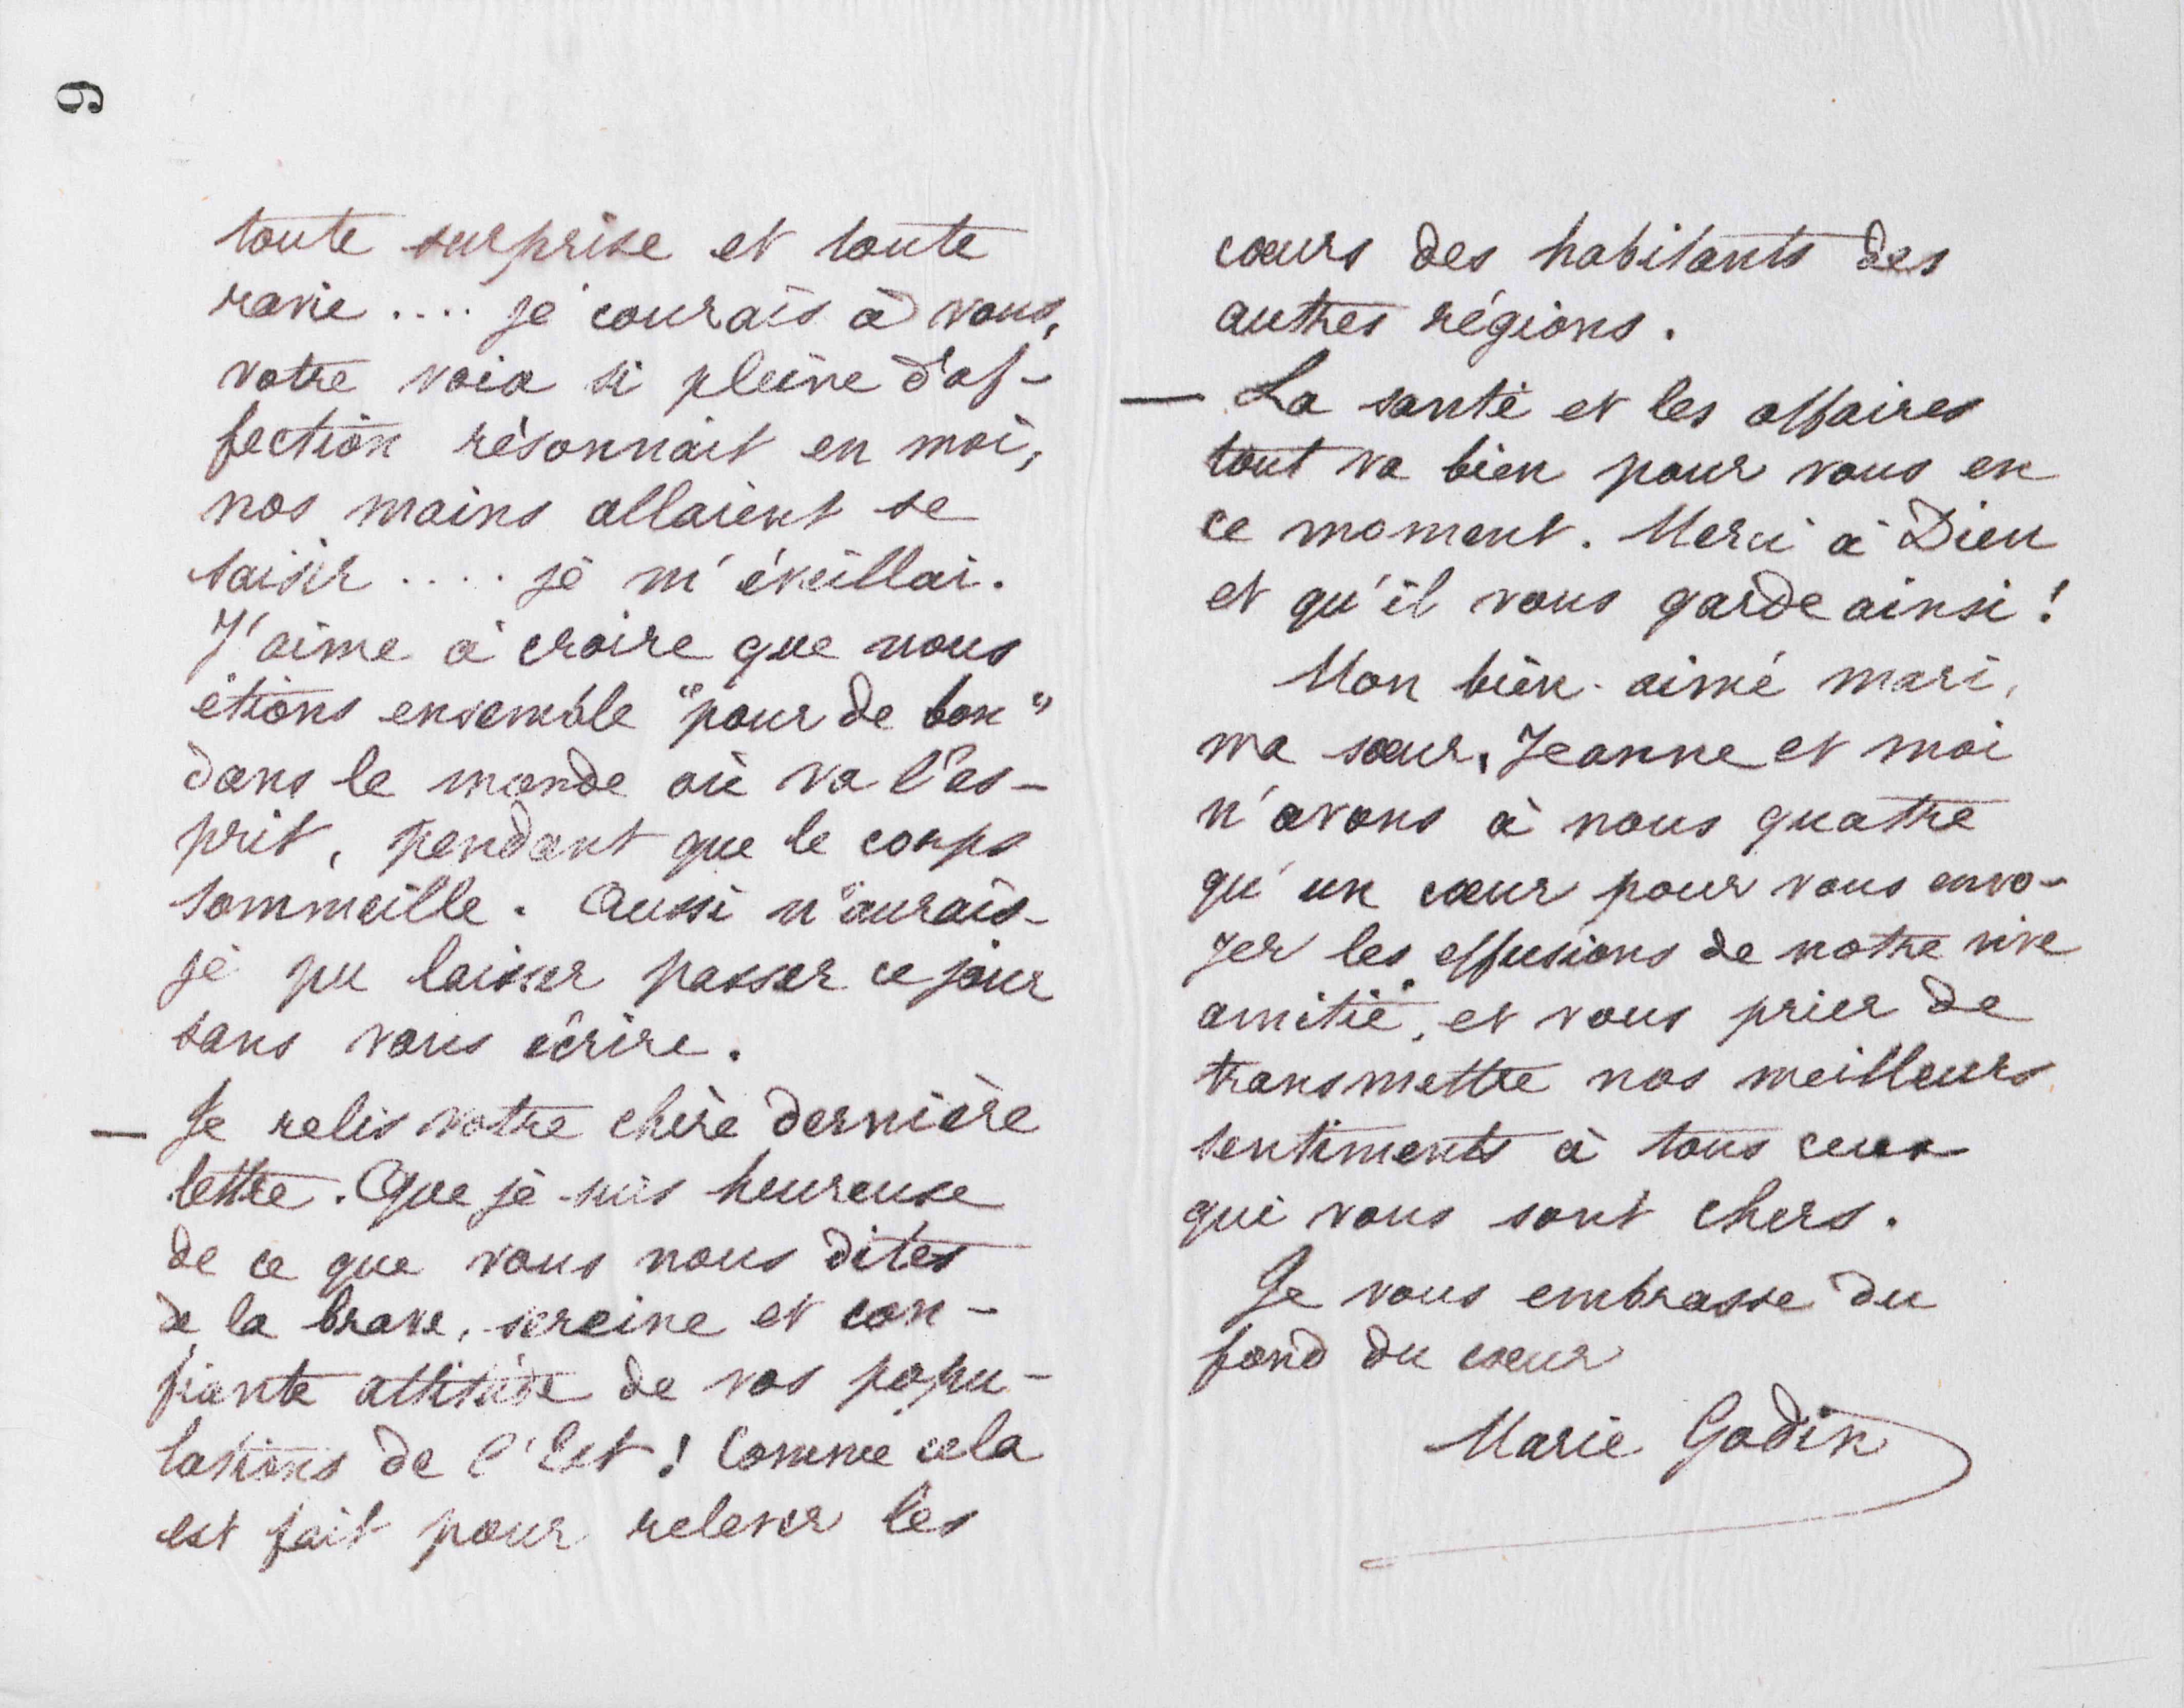 9
toute surprise et toute
ravie .... je courais à vous,
votre voix si pleine d'af-
fection résonnait en moi,
nos mains allaient se
saisir .... je m'éveillai.
J'aime à croire que nous
étions ensemble "pour de bon"
dans le monde où va l'es-
prit, pendant que le corps
sommeille. Aussi n'aurais-
je pu laisser passer ce jour
sans vous écrire.
— Je relis votre chère dernière
lettre. Que je suis heureuse
de ce que vous nous dites
de la brave, sereine et con-
fiante attitude de vos popu-
lations de l'Est! Comme cela
est fait pour relever les
cœurs des habitants des
autres régions.
— La santé et les affaires
tout va bien pour vous en
ce moment. Merci à Dieu
et qu'il vous garde ainsi!
Mon bien-aimé mari,
ma sœur, Jeanne et moi
n'avons à nous quatre
qu'un cœur pour vous envo-
yer les effusions de notre vive
amitié, et vous prier de
transmettre nos meilleurs
sentiments à tous ceux
qui vous sont chers.
Je vous embrasse du
fond du cœur
Marie Godin